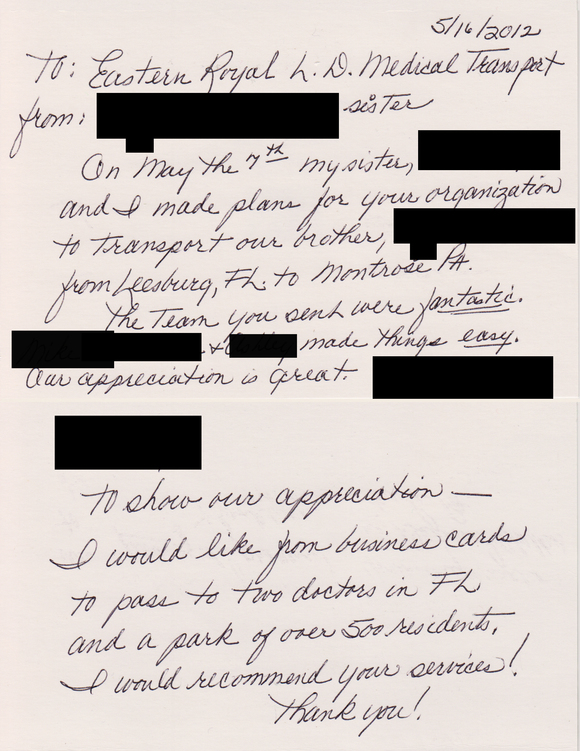 5/16/2012
To: Eastern Royal L. D. Medical Transport
from: sister
On May the 7th my sister,
and I made plans for your organization
to transport our brother,
from Leesburg, FL. to Montrose PA.
The Team you sent were fantastic.
& made things easy.
Our appreciation is great.
To show our appreciation —
I would like from business cards
to pass to two doctors in FL
and a park of over 500 residents.
I would recommend your services!
Thank you!